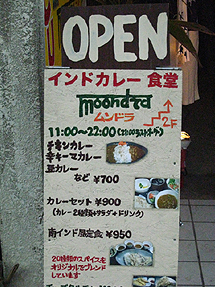 OPEN
インドカレー 食堂
moondra
ムンドラ
2F
11:00〜22:00
チキンカレー
辛キーマカレー
豆カレー
など ¥700
カレーセット ¥900
(カレー2種類+サラダ+ドリンク)
南インド風定食 ¥950
20種類のスパイスを
オリジナルでブレンド
しています